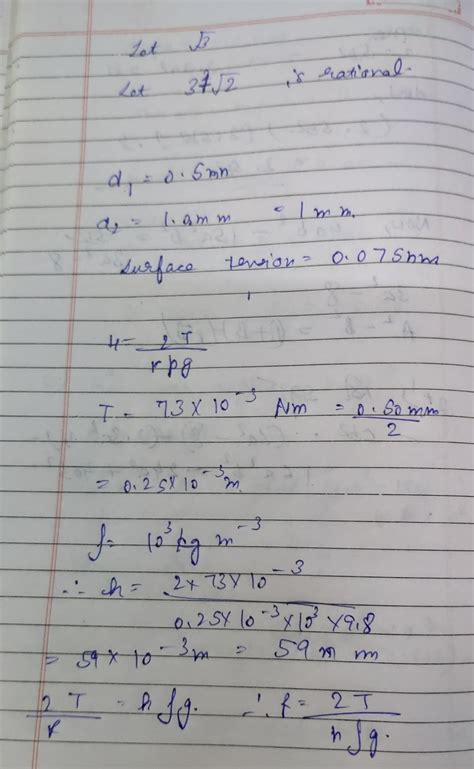 Let √3
Let 3+√2 is rational.
d₁ = 0.5mm
d₂ = 1.0mm = 1mm.
Surface tension = 0.075nm
h = 2T / rρg
T = 73 × 10⁻³ Nm = 0.50mm / 2
= 0.25 × 10⁻³ m
ρ = 10³ kg m⁻³
∴ h = 2 × 73 × 10⁻³ / 0.25 × 10⁻³ × 10³ × 9.8
= 59 × 10⁻³ m = 59 m m
2T / r = hρg. ∴ r = 2T / hρg.